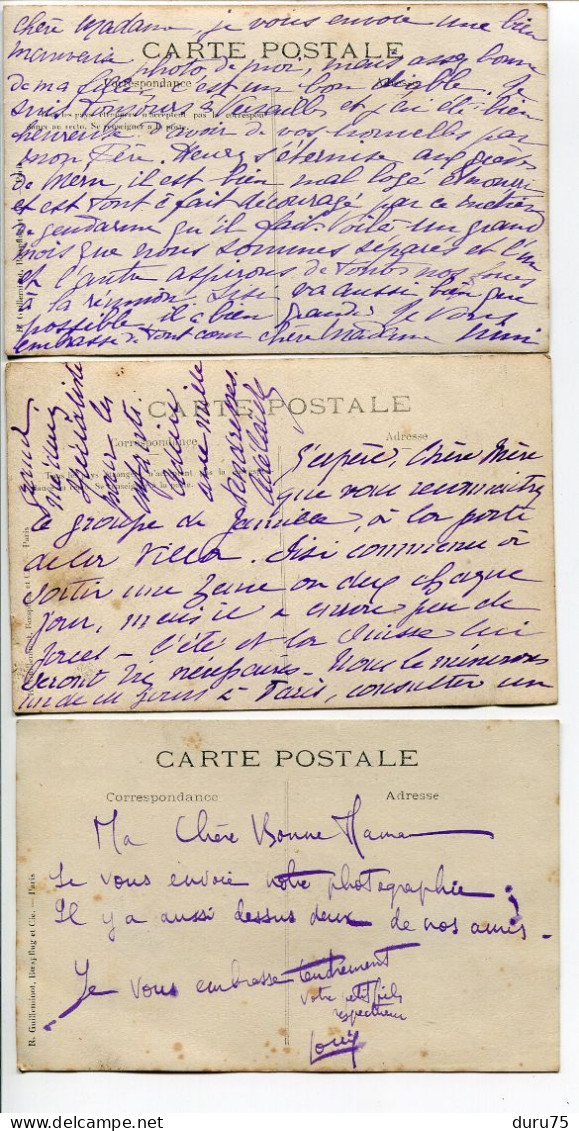 Chère Madame je vous envoie une bien
mauvaise photo, de moi, mais assez bonne
CARTE POSTALE
Correspondance
Adresse
de ma est un bon diable. Je
suis toujours à Versailles et j'ai été bien
heureuse d'avoir de vos nouvelles par
mon Père. Henry s'éternise aux grèves
de Meru, il est bien mal logé
et est tout à fait découragé par ce métier
de gendarme qu'il fait. Voilà un grand
mois que nous sommes séparés et l'un
et l'autre aspirons de tous nos
à la réunion. Sisi va aussi bien que
possible, il a bien grandi. Je vous
embrasse de tout coeur chère Madame Mimi
R. Guilleminot, Bœspflug et Cie. — Paris
CARTE POSTALE
Correspondance
Adresse
J'espère, Chère Mère
que vous reconnaitrez
le groupe de famille, à la porte
de la Villa. Sisi commence à
sortir une heure ou deux chaque
jour, mais il a encore peu de
forces — l'été et la Suisse lui
seront très nécessaires. Nous le mènerons
un de ces jours à Paris, consulter un
grand
médecin
spécialiste
pour les
une mille
tendresses
Adelaïde
R. Guilleminot, Bœspflug et Cie. — Paris
CARTE POSTALE
Correspondance
Adresse
Ma Chère Bonne Maman
Je vous envoie notre photographie ;
Il y a aussi dessus deux de nos amis.
Je vous embrasse tendrement
votre petit fils
respectueux
Louis
R. Guilleminot, Bœspflug et Cie. — Paris
© duru75